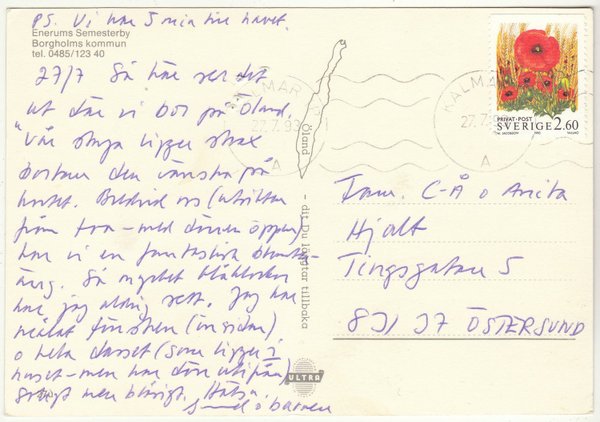 PS. Vi har 5 min till havet.
Enerums Semesterby
Borgholms kommun
tel. 0485/123 40
27/7 Så här ser det
ut där vi bor på Öland.
Vår stuga ligger strax
bortom den vänstra på
kortet. Bredvid oss (utsikten
från - med dörren öppen)
har vi en fantastisk blomster-
äng. Så mycket blåklockor
har jag aldrig sett. Jag har
målat fönstren (insidan)
o hela dasset (som ligger i
huset - men har dörr utifrån)
grått men blårigt. Hälsn.
o barnen
KALMAR
27.7.93
A
KALMAR
27.7.9
A
Öland
- dit Du längtar tillbaka
ULTRA
PRIVAT·POST
SVERIGE 2.60
M. JACOBSON 1993
Fam. C-Å o Anita
Hjalt
Tingsgatan 5
831 37 ÖSTERSUND